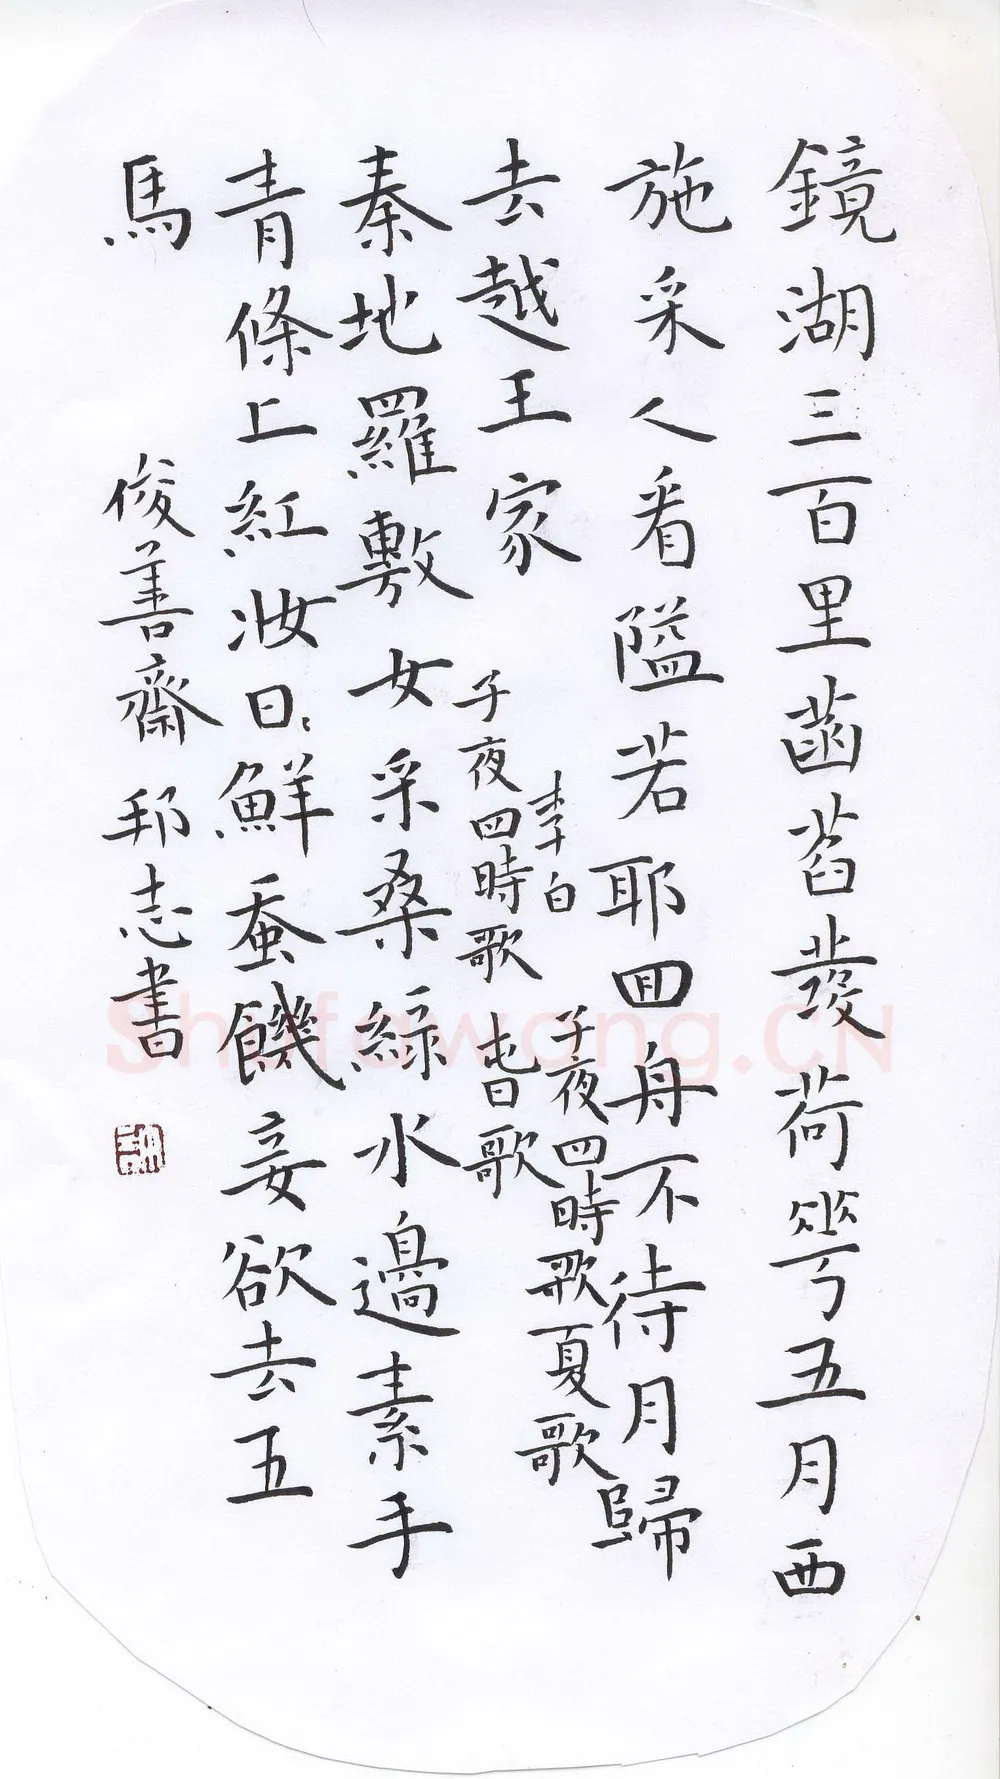 鏡湖三百里菡萏發荷華五月西
施采人看隘若耶囬舟不待月歸
去越王家
李白 子夜四時歌夏歌
子夜四時歌 旾歌
秦地羅敷女采桑綠水邊素手
青條上紅妝日〻鮮蚕饑妾欲去五
馬 俊善齋邦志書
Shufawang.CN